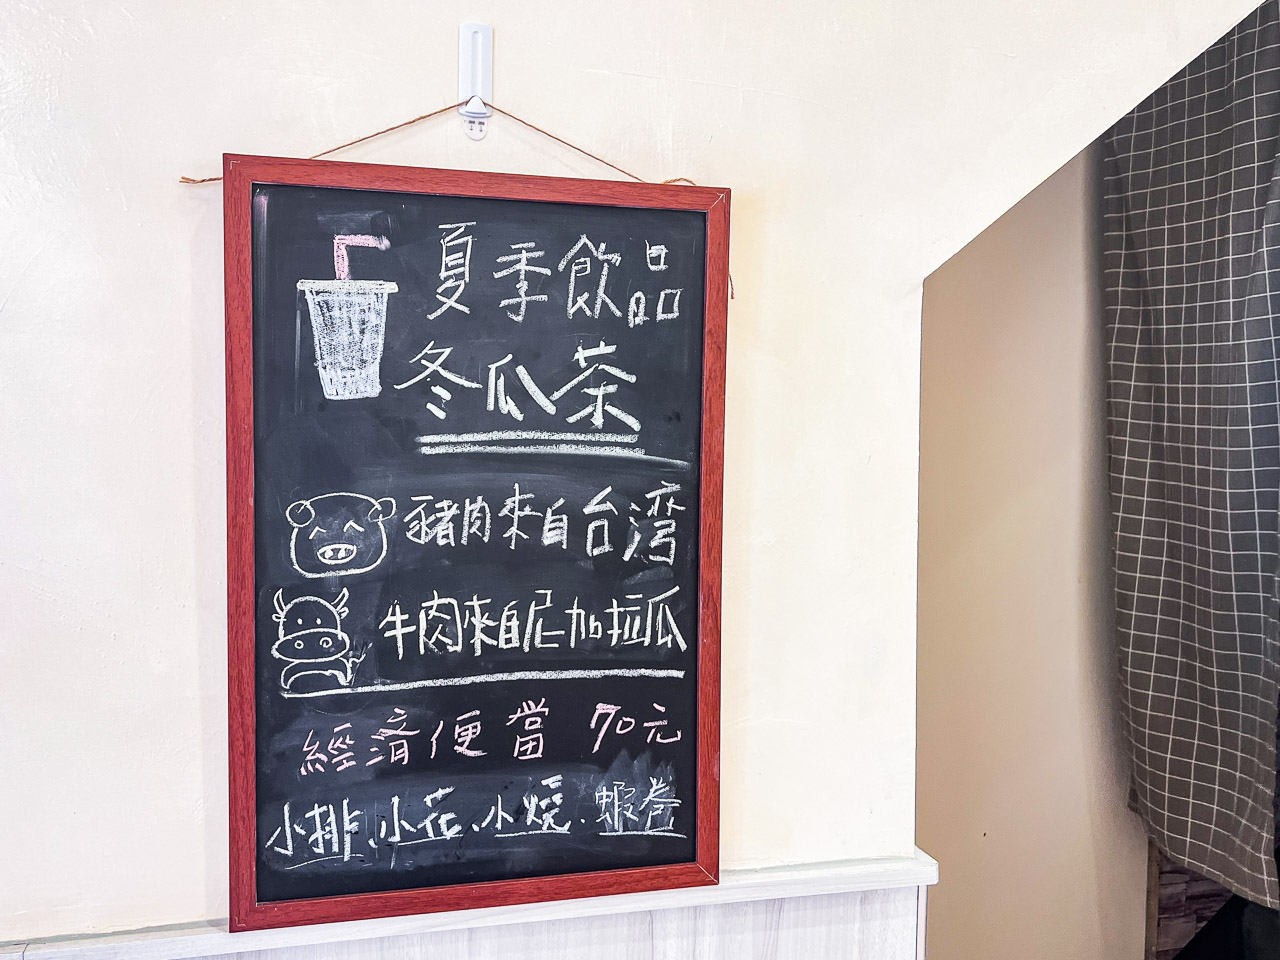 夏季飲品
冬瓜茶
豬肉來自台湾
牛肉來自尼加拉瓜
經濟便當 70元
小排、小花、小燒、蝦卷